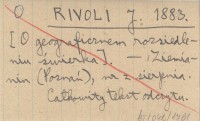 O RIVOLI J. 1883.
[O geograficznem rozsiedle-
niu świerka]. — Ziemia-
nin (Poznań), na 2 sierpnia.
Całkowity tekst odczytu.